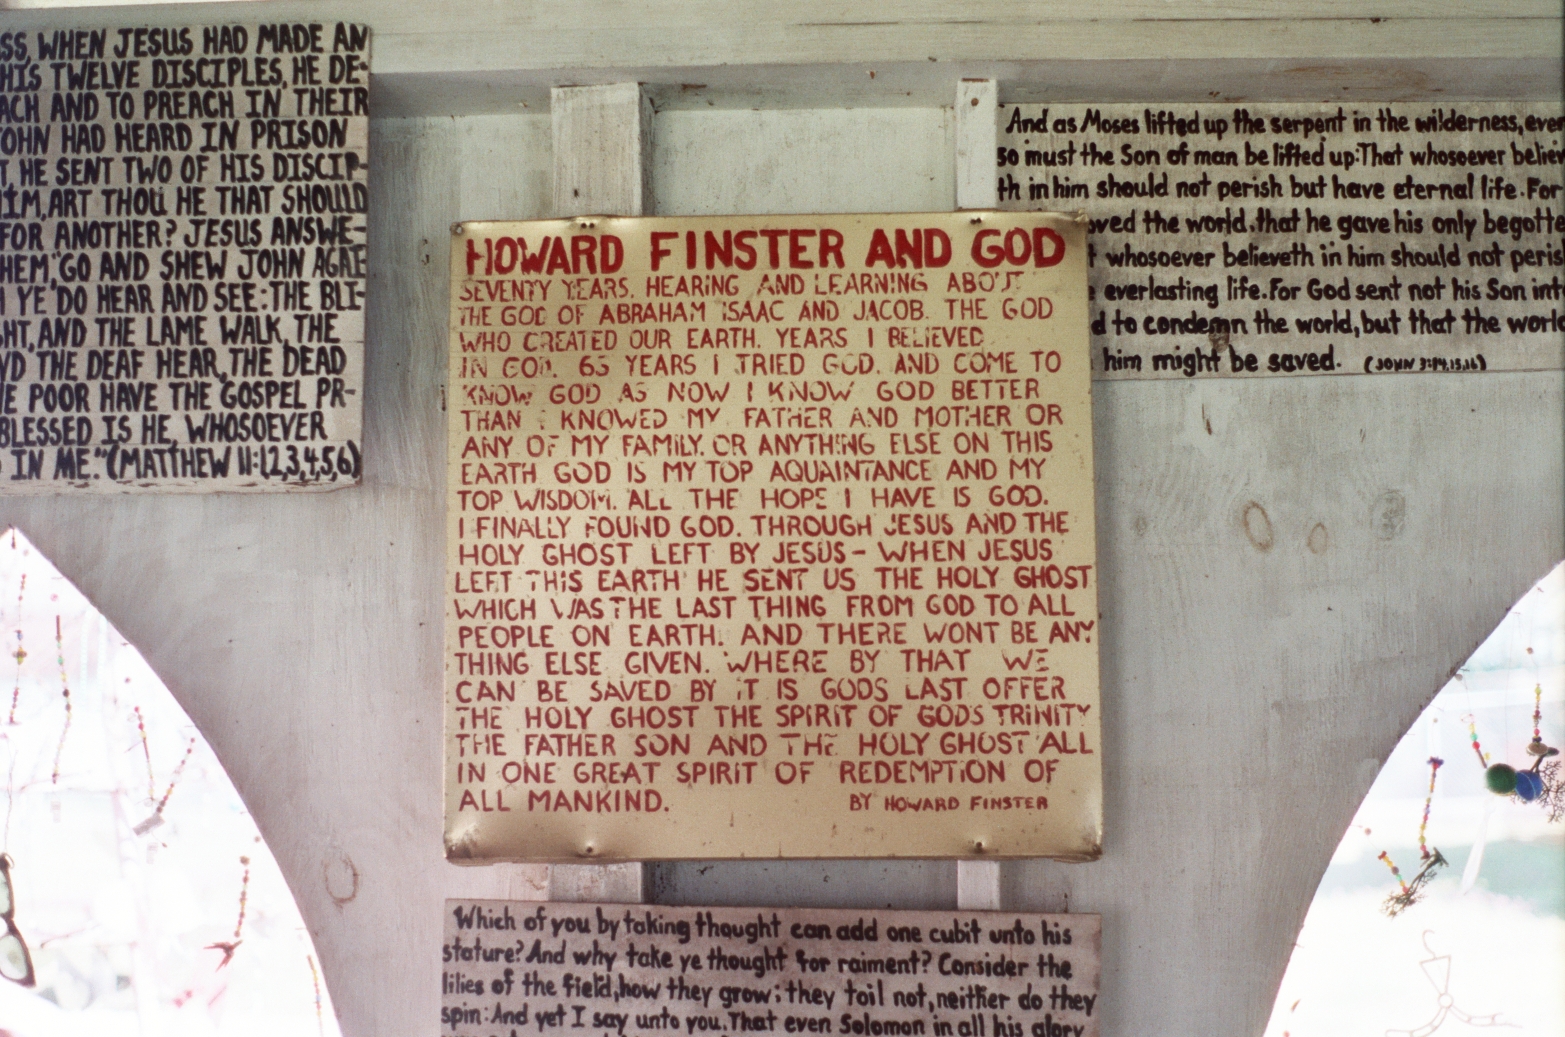 SS, WHEN JESUS HAD MADE AN
HIS TWELVE DISCIPLES, HE DE-
ACH AND TO PREACH IN THEIR
OHN HAD HEARD IN PRISON
T HE SENT TWO OF HIS DISCIP-
HIM, ART THOU HE THAT SHOULD
FOR ANOTHER? JESUS ANSWE-
HEM, "GO AND SHEW JOHN AGAI
H YE DO HEAR AND SEE: THE BLI-
GHT, AND THE LAME WALK, THE
ND THE DEAF HEAR, THE DEAD
HE POOR HAVE THE GOSPEL PR-
BLESSED IS HE, WHOSOEVER
D IN ME." (MATTHEW 11:1,2,3,4,5,6)
HOWARD FINSTER AND GOD
SEVENTY YEARS. HEARING AND LEARNING ABOUT
THE GOD OF ABRAHAM ISAAC AND JACOB. THE GOD
WHO CREATED OUR EARTH. YEARS I BELIEVED
IN GOD. 65 YEARS I TRIED GOD. AND COME TO
KNOW GOD AS NOW I KNOW GOD BETTER
THAN I KNOWED MY FATHER AND MOTHER OR
ANY OF MY FAMILY. OR ANYTHING ELSE ON THIS
EARTH GOD IS MY TOP AQUAINTANCE AND MY
TOP WISDOM. ALL THE HOPE I HAVE IS GOD.
I FINALLY FOUND GOD. THROUGH JESUS AND THE
HOLY GHOST LEFT BY JESUS - WHEN JESUS
LEFT THIS EARTH HE SENT US THE HOLY GHOST
WHICH WAS THE LAST THING FROM GOD TO ALL
PEOPLE ON EARTH. AND THERE WONT BE ANY
THING ELSE GIVEN. WHERE BY THAT WE
CAN BE SAVED BY IT IS GODS LAST OFFER
THE HOLY GHOST THE SPIRIT OF GODS TRINITY
THE FATHER SON AND THE HOLY GHOST ALL
IN ONE GREAT SPIRIT OF REDEMPTION OF
ALL MANKIND. BY HOWARD FINSTER
And as Moses lifted up the serpent in the wilderness, even
so must the Son of man be lifted up: That whosoever believ
th in him should not perish but have eternal life. For
oved the world, that he gave his only begotte
t whosoever believeth in him should not peris
e everlasting life. For God sent not his Son int
d to condemn the world, but that the world
him might be saved. (JOHN 3:14,15,16)
Which of you by taking thought can add one cubit unto his
stature? And why take ye thought for raiment? Consider the
lilies of the field, how they grow; they toil not, neither do they
spin: And yet I say unto you. That even Solomon in all his glory